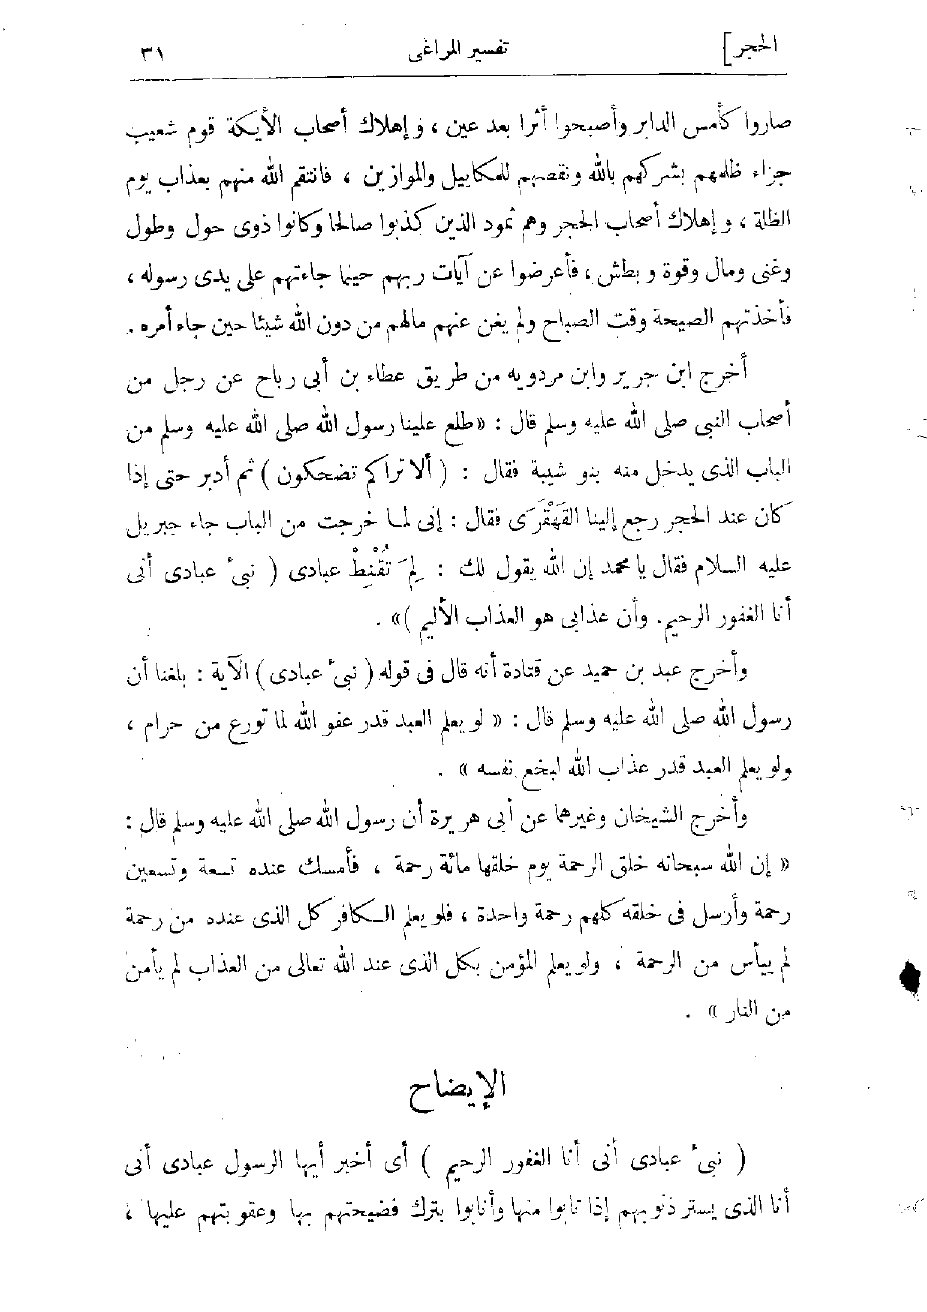 الحجر]
تفسير المراغى
٣١
صاروا كأمس الدابر وأصبحوا أثرا بعد عين ، وإهلاك أصحاب الأيكة قوم شعيب
جزاء ظلمهم بشركهم بالله ونقصهم للمكاييل والموازين ، فانتقم الله منهم بعذاب يوم
الظلة ، وإهلاك أصحاب الحجر وهم ثمود الذين كذبوا صالحا وكانوا ذوى حول وطول
وغنى ومال وقوة وبطش ، فأعرضوا عن آيات ربهم حينما جاءتهم على يدى رسوله ،
فأخذتهم الصيحة وقت الصباح ولم يغن عنهم مالهم من دون الله شيئا حين جاء أمره .
أخرج ابن جرير وابن مردويه من طريق عطاء بن أبى رباح عن رجل من
أصحاب النبى صلى الله عليه وسلم قال : «طلع علينا رسول الله صلى الله عليه وسلم من
الباب الذى يدخل منه بنو شيبة فقال : ( ألا تراكم تضحكون ) ثم أدبر حتى إذا
كان عند الحجر رجع إلينا القَهْقَرَى فقال : إنى لما خرجت من الباب جاء جبريل
عليه السلام فقال يا محمد إن الله يقول لك : لِمَ تُقْنِطْ عبادى ( نبىء عبادى أنى
أنا الغفور الرحيم. وأن عذابى هو العذاب الأليم )» .
وأخرج عبد بن حميد عن قتادة أنه قال فى قوله ( نبىء عبادى ) الآية : بلغنا أن
رسول الله صلى الله عليه وسلم قال : « لو يعلم العبد قدر عفو الله لما تورع من حرام ،
ولو يعلم العبد قدر عذاب الله لبخع نفسه » .
وأخرج الشيخان وغيرهما عن أبى هريرة أن رسول الله صلى الله عليه وسلم قال :
« إن الله سبحانه خلق الرحمة يوم خلقها مائة رحمة ، فأمسك عنده تسعة وتسعين
رحمة وأرسل فى خلقه كلهم رحمة واحدة ، فلو يعلم الكافر كل الذى عنده من رحمة
لم ييأس من الرحمة ، ولو يعلم المؤمن بكل الذى عند الله تعالى من العذاب لم يأمن
من النار » .
الإيضاح
( نبىء عبادى أنى أنا الغفور الرحيم ) أى أخبر أيها الرسول عبادى أنى
أنا الذى يستر ذنوبهم إذا تابوا منها وأنابوا بترك فضيحتهم بها وعقوبتهم عليها ،